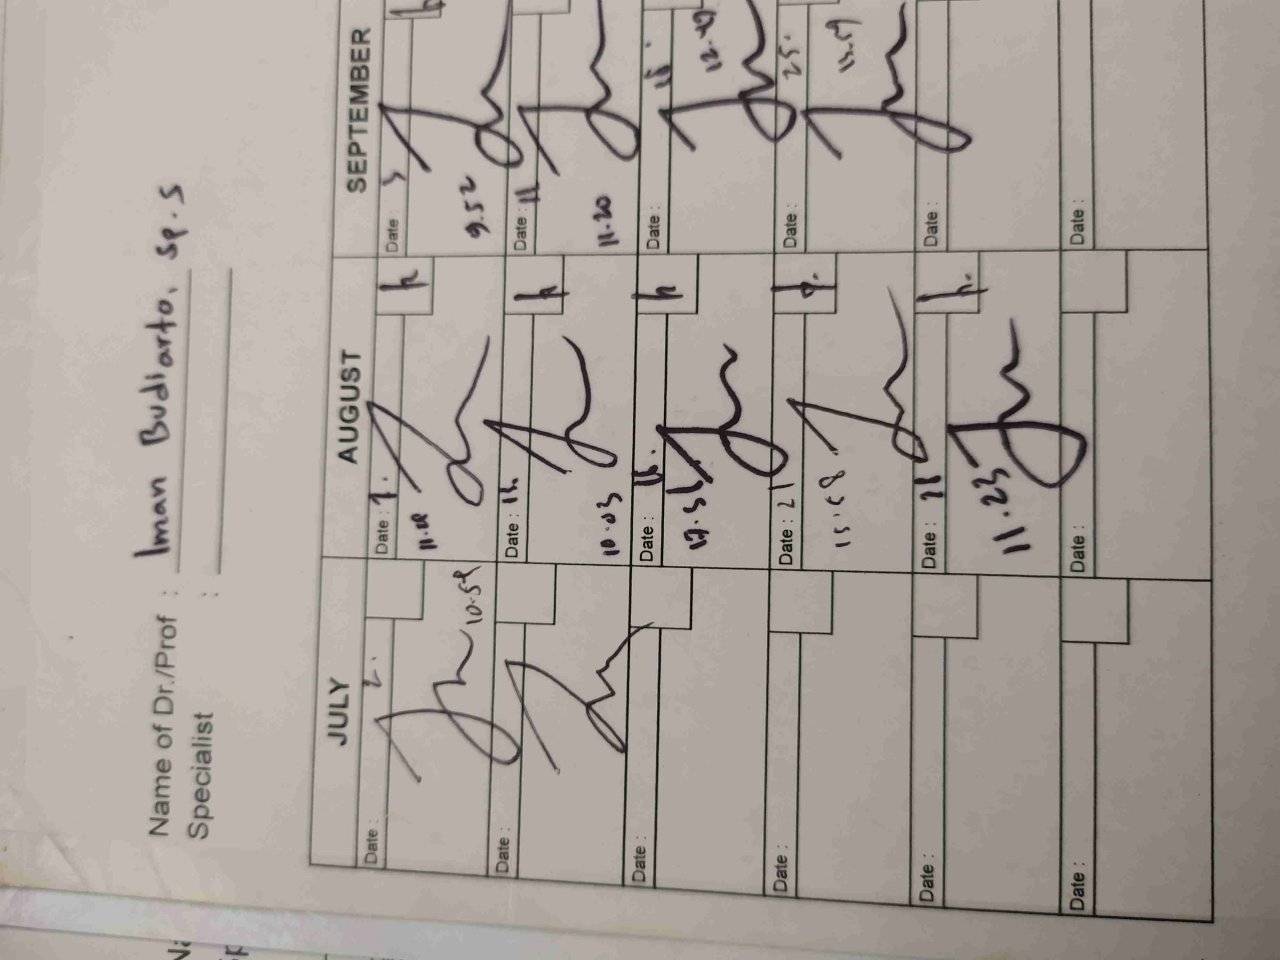 Name of Dr./Prof : Iman Budiarto, Sp.S
Specialist :
JULY AUGUST SEPTEMBER
Date : 2. Date : 7. h Date : h
10.59 11.08 9.52
Date : Date : h Date : 11
10.03 11.20
Date : Date : h Date : 18.
17.31 12.49
Date : Date : 21 Date : 25.
15.58 13.59
Date : Date : 28 h. Date :
11.23
Date : Date : Date :